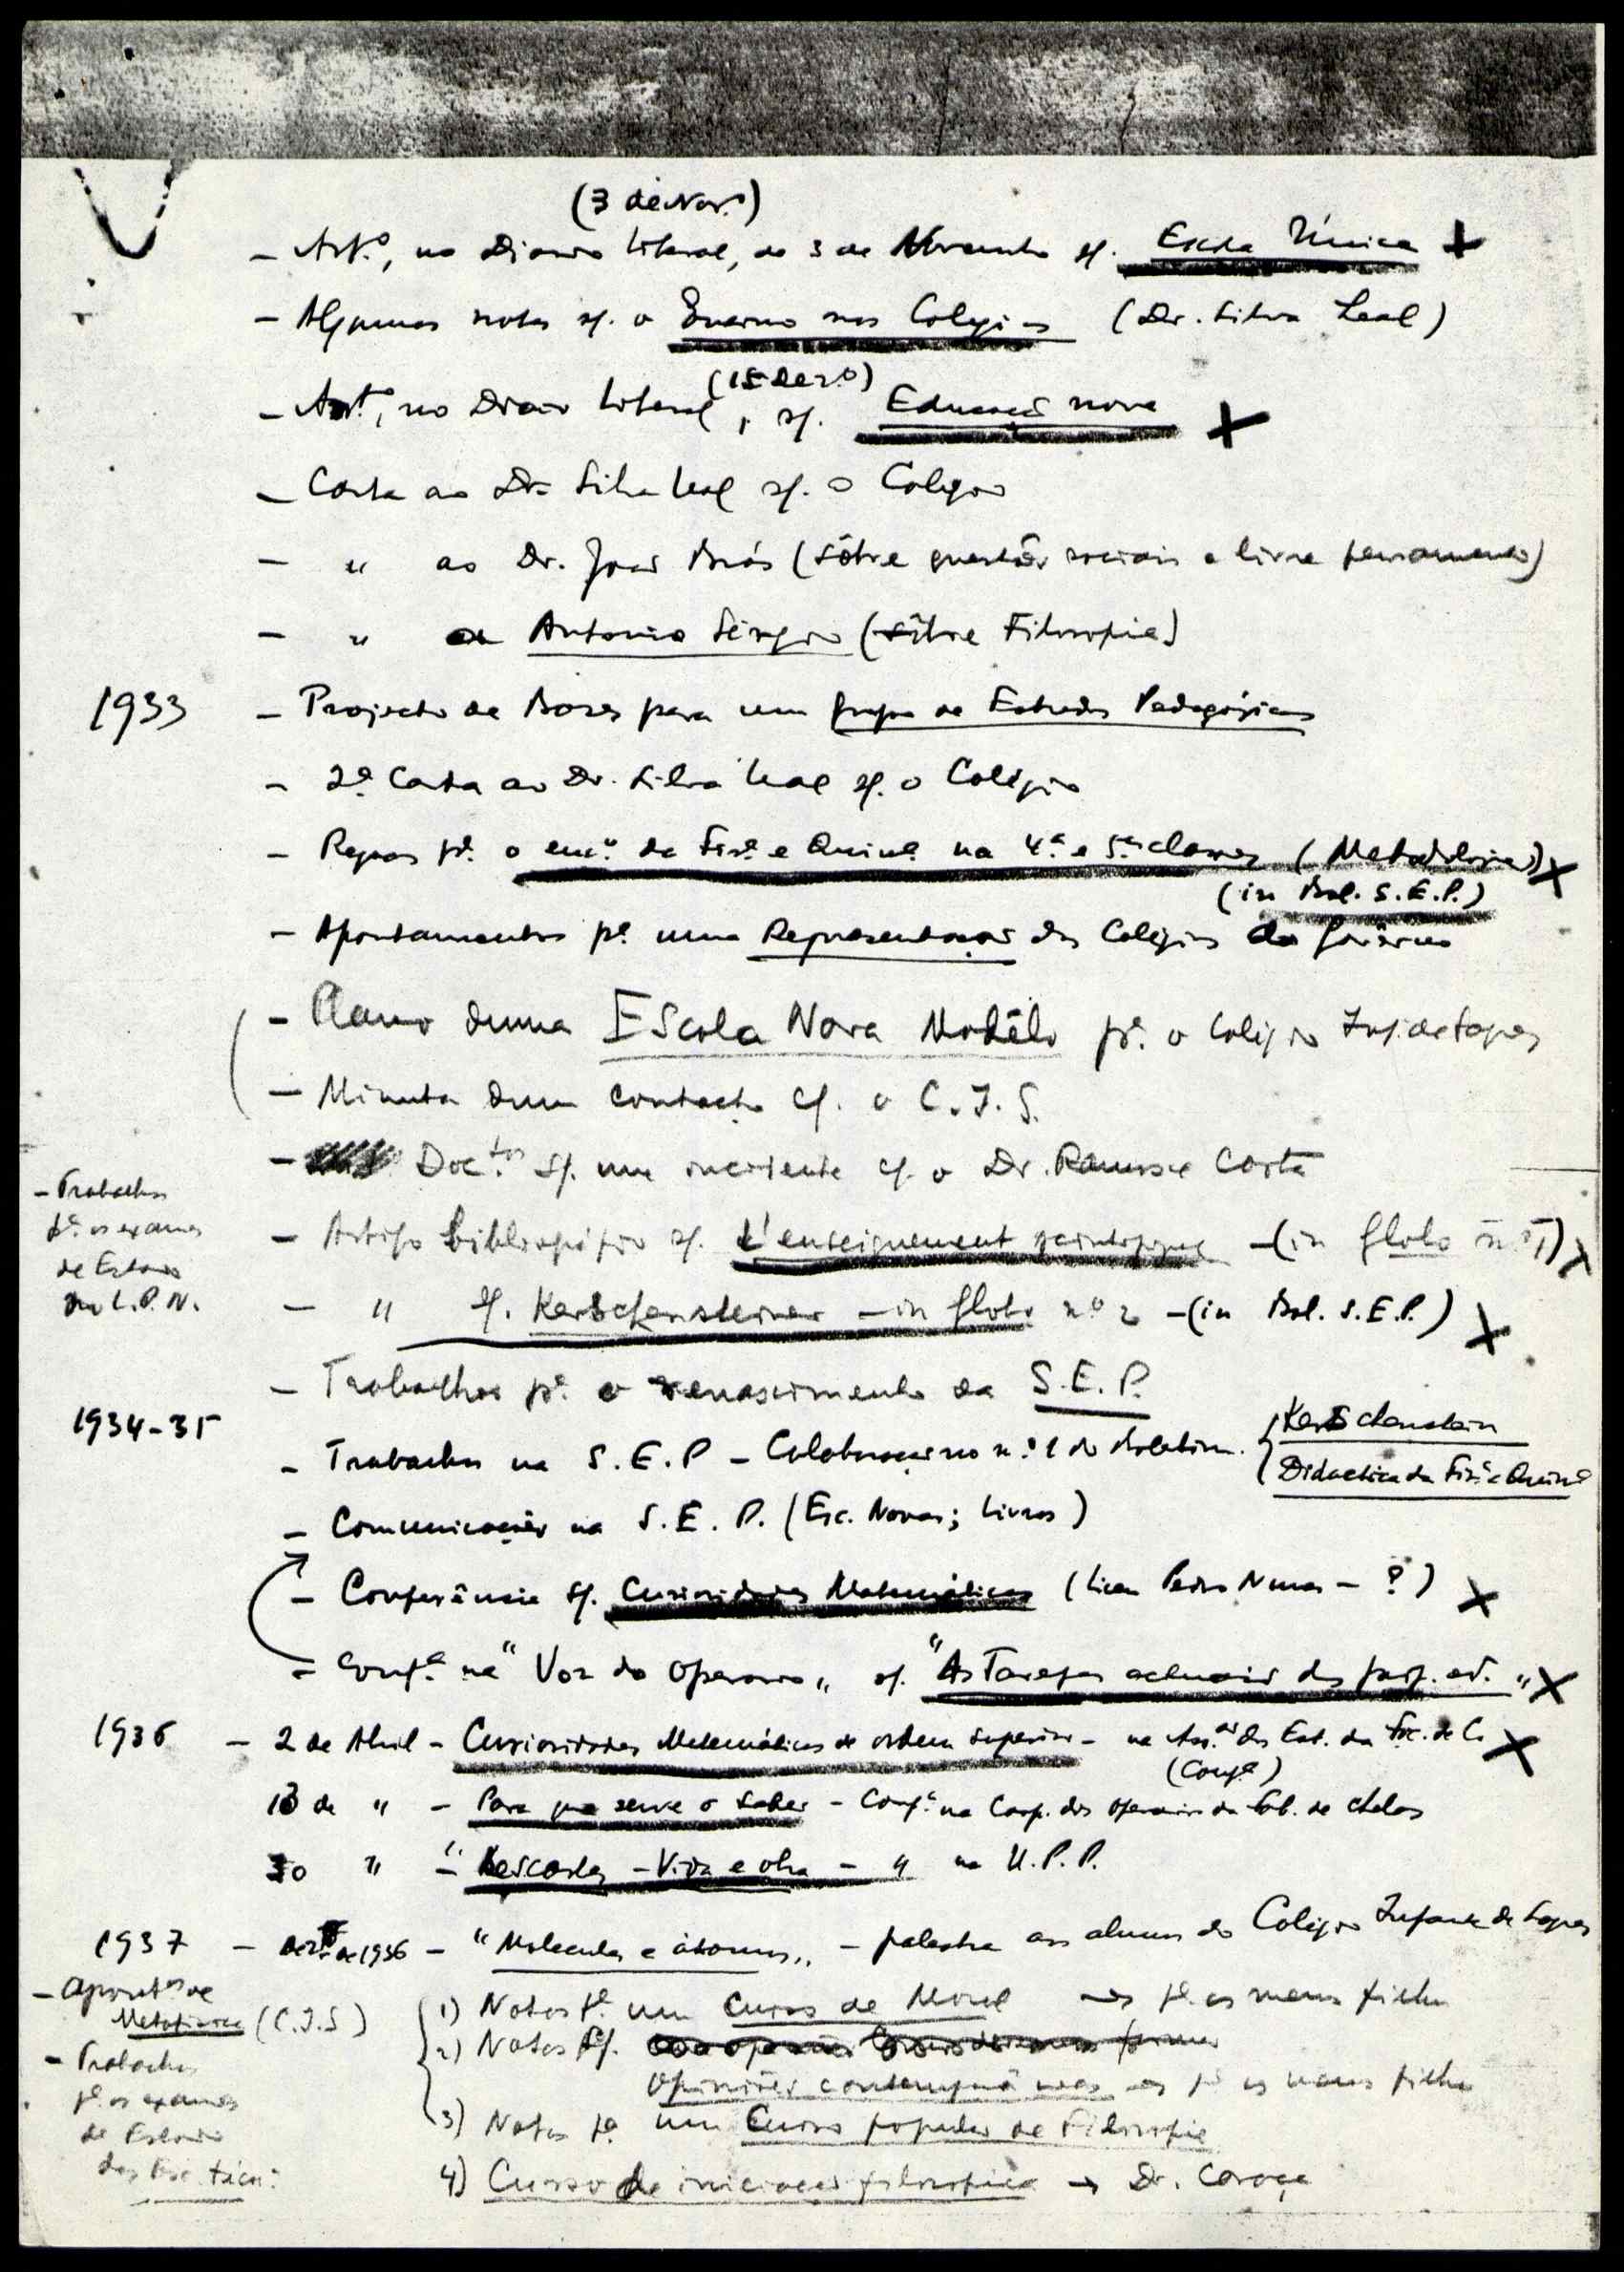 (3 de Nov.º)
- Art.º, no Diario Liberal, de 3 de Novembro s/. Escola Única X
- Algumas notas s/. o Ensino nos Colegios (Dr. Silva Leal)
(15 Dez.º)
- Art.º, no Diario Liberal, s/. Educação nova X
- Carta ao Dr. Silva Leal s/. o Colegio
- " ao Dr. João Brás (sôbre questões sociais e livre pensamento)
- " a Antonio Sérgio (sôbre Filosofia)
1933 - Projecto de Bases para um grupo de Estudos Pedagógicos
- 2ª Carta ao Dr. Silva Leal s/. o Colégio
- Regras pª. o ens.º da Fisª e Quimª na 4ª e 5ª classes (Metodologia) X
(in Bol. S.E.P.)
- Apontamentos pª uma Representação dos Colégios ao Govêrno
- Plano duma Escola Nova Modêlo pª. o Colégio Inf. de Sagres
- Minuta dum contracto c/. o C.I.S.
- Doc.tos s/. um incidente c/. o Dr. Ramos e Costa
- Trabalhos
pª os exames
de Estado
no L.P.N.
- Artigo bibliográfico s/. L'enseignement scientifique - (in Globo nº 1) X
- " s/. Kerschensteiner - in Globo nº 2 - (in Bol. S.E.P.) X
- Trabalhos pª. o renascimento da S.E.P.
1934-35
- Trabalhos na S.E.P - Colaboração no n.º 1 do Boletim. { Kerschenstein
Didactica da Fisª e Quimª
- Comunicações na S.E.P. (Esc. Novas; Livros)
- Conferência s/. Curiosidades Matemáticas (Liceu Pedro Nunes - ?) X
- Confª. na "Voz do Operario" s/. "As Tarefas actuais dos prof. ed." X
1936 - 2 de Abril - Curiosidades Matemáticas de ordem superior - na Ass.ão dos Est. da Fac. de C. X
(Confª)
13 de " - Para que serve o Saber - Confª. na Coop. dos Operarios da Fab. de Chelas
30 " - "Descartes - Vida e obra - " na U.P.P.
1937 - Dezº de 1936 - "Moleculas e átomos" - palestra aos alunos do Colégio Infante de Sagres
- Apont.os de
Metafisica (C.I.S)
- Trabalhos
pª os exames
de Estado
das Esc. técn.
1) Notas pª um Curso de Moral → pª os meus filhos
2) Notas s/.
Opiniões contemporâneas → pª os meus filhos
3) Notas pª um Curso popular de Filosofia
4) Curso de iniciação filosófica → Dr. Caraça